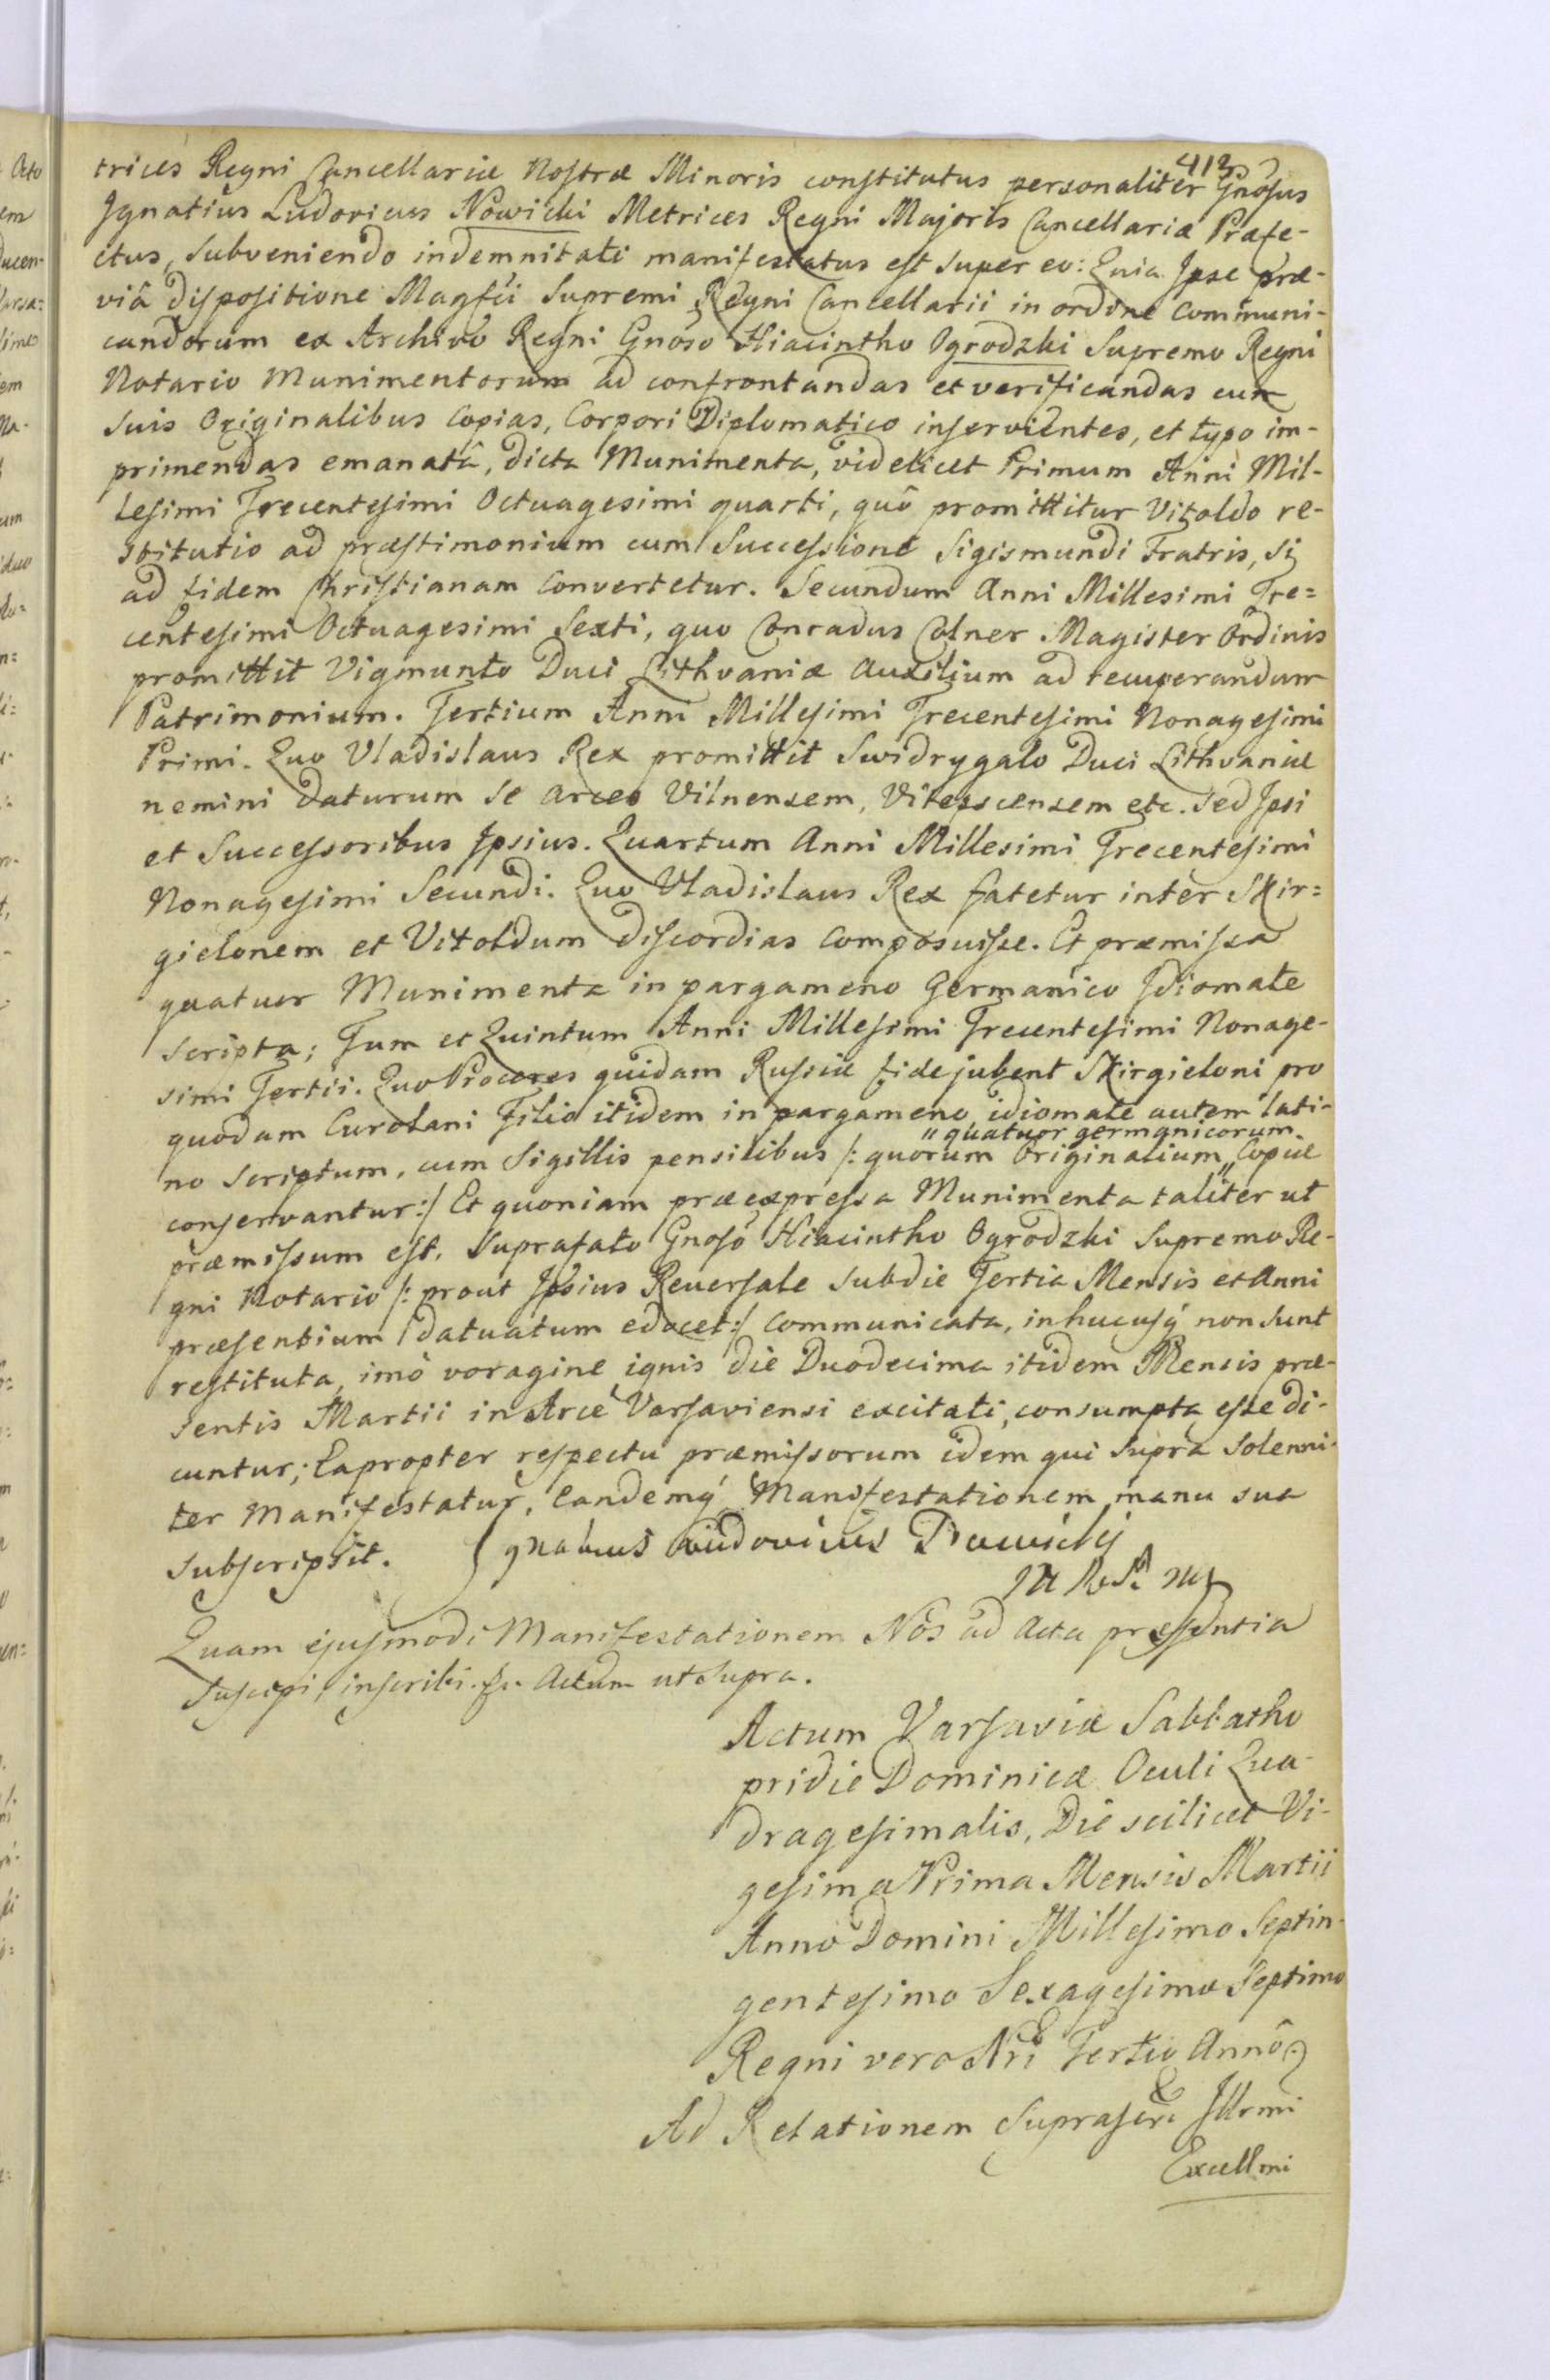 413
trices Regni Cancellariæ Nostræ Minoris constitutus personaliter Gnosus
Ignatius Ludovicus Nowicki Metrices Regni Majoris Cancellariæ Præfe-
ctus, subveniendo indemnitati manifestatus est super eo: Quia Ipse præ-
viâ dispositione Magfci Supremi Regni Cancellarii in ordine Communi-
candorum ex Archivo Regni Gnoso Hiacintho Ogrodzki Supremo Regni
Notario Munimentorum ad confrontandas et verificandas cum
suis Originalibus Copias, Corpori Diplomatico inservientes, et typo im-
primendas emanatâ, dicta Munimenta, videlicet Primum Anni Mil-
lesimi Trecentesimi Octuagesimi quarti, quô promittitur Vitoldo re-
stitutio ad præstimonium cum Successione Sigismundi Fratris, si
ad fidem Christianam Convertetur. Secundum Anni Millesimi Tre=
centesimi Octuagesimi Sexti, quo Conradus Colner Magister Ordinis
promittit Vigmunto Duci Lithvaniæ Auxilium ad recuperandum
Patrimonium. Tertium Anni Millesimi Trecentesimi Nonagesimi
Primi. Quo Vladislaus Rex promittit Swidrygalo Duci Lithvaniæ
nemini daturum se arces Vilnensem, Vitepscensem etc. sed Ipsi
et Successoribus Ipsius. Quartum Anni Millesimi Trecentesimi
Nonagesimi Secundi. Quo Vladislaus Rex fatetur inter Skir=
gielonem et Vitoldum discordias Composuisse. Et præmissa
quatuor Munimenta in pargameno Germanico Idiomate
scripta; Tum et Quintum Anni Millesimi Trecentesimi Nonage-
simi Tertii. Quo Proceres quidam Russiæ fidejubent Skirgieloni pro
quodam Curolani Filio itidem in pargameno idiomate autem lati-
"quatuor germanicorum
no scriptum, cum Sigillis pensilibus /: quorum Originalium " Copiæ
conservantur :/ Et quoniam præexpressa Munimenta taliter ut
præmissum est. Suprafato Gnosô Hiacintho Ogrodzki Supremo Re-
gni Notario /: prout Ipsius Reversale sub die Tertia Mensis et Anni
præsentium datuatum edocet :/ Communicata, in hucusq́ non sunt
restituta, imò voragine ignis die Duodecima itidem Mensis præ-
sentis Martii in Arce Varsaviensi excitati, consumpta esse di-
cuntur; Eapropter respectu præmissorum idem qui supra solenni-
ter Manifestatur, Eandemq́ Manifestationem manu sua
subscripsit. Ignatius Ludovicus Nowicki
Quam ejusmodi Manifestationem Nos ad Acta præsentia
suscepi, inscribi. fe. Actum ut supra.
Actum Varsaviæ Sabbatho
pridie Dominicæ Oculi Qua-
dragesimalis, Die scilicet Vi-
gesima Prima Mensis Martii
Anno Domini Millesimo Septin-
gentesimo Sexagesimo Septimo
Regni vero Nri Tertio Annô
Ad Relationem suprascri Illrmi
Excellmi